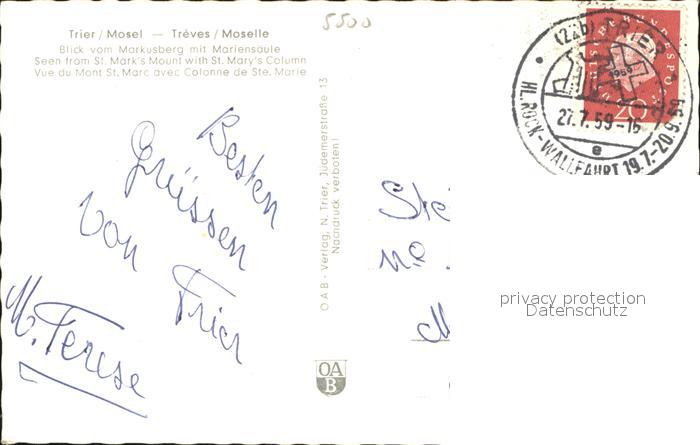 5500
Trier / Mosel — Trèves / Moselle
Blick vom Markusberg mit Mariensäule
Seen from St. Mark's Mount with St. Mary's Column
Vue du Mont St. Marc avec Colonne de Ste. Marie
Besten
Grüssen
von
Trier
M. Terese
OAB - Verlag, N. Trier, Jüdemerstraße 13
Nachdruck verboten!
OA
B
(22b) TRIER
1959
20
27.7.59-16
e
HL. ROCK-WALLFAHRT 19.7.-20.9.59
Ste
no.
privacy protection
Datenschutz